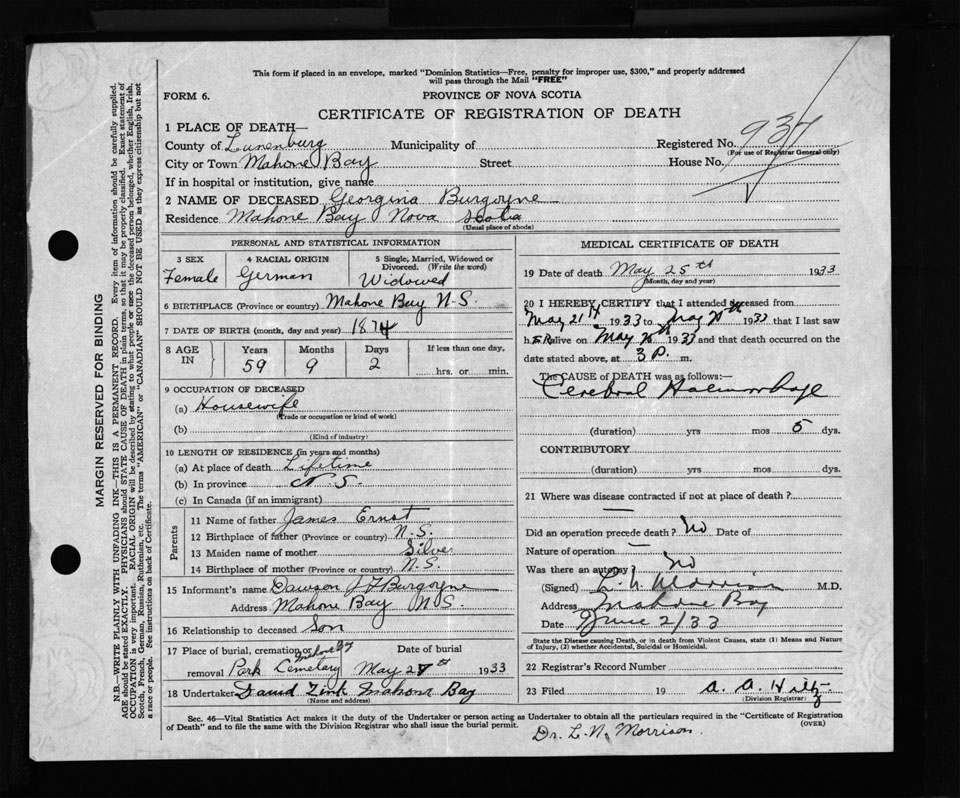 This form if placed in an envelope, marked "Dominion Statistics—Free, penalty for improper use, $300," and properly addressed
will pass through the Mail "FREE"
FORM 6. PROVINCE OF NOVA SCOTIA
CERTIFICATE OF REGISTRATION OF DEATH
1 PLACE OF DEATH—
County of Lunenburg Municipality of Registered No. 937
(For use of Registrar General only)
City or Town Mahone Bay Street House No.
If in hospital or institution, give name
2 NAME OF DECEASED Georgina Burgoyne
Residence Mahone Bay Nova Scotia
(Usual place of abode)
PERSONAL AND STATISTICAL INFORMATION
3 SEX 4 RACIAL ORIGIN 5 Single, Married, Widowed or
Divorced. (Write the word)
Female German Widowed
6 BIRTHPLACE (Province or country) Mahone Bay N.S.
7 DATE OF BIRTH (month, day and year) 1874
8 AGE IN Years Months Days If less than one day,
59 9 2 hrs. or min.
9 OCCUPATION OF DECEASED
(a) Housewife
(Trade or occupation or kind of work)
(b)
(Kind of industry)
10 LENGTH OF RESIDENCE (in years and months)
(a) At place of death Lifetime
(b) In province N.S.
(c) In Canada (if an immigrant)
Parents
11 Name of father James Ernst
12 Birthplace of father (Province or country) N.S.
13 Maiden name of mother Silver
14 Birthplace of mother (Province or country) N.S.
15 Informant's name Dawson Burgoyne
Address Mahone Bay N.S.
16 Relationship to deceased Son
17 Place of burial, cremation or Mahone Bay Date of burial
removal Park Cemetary May 27th 1933
18 Undertaker David Zink Mahone Bay
(Name and address)
MEDICAL CERTIFICATE OF DEATH
19 Date of death May 25th 1933
(Month, day and year)
20 I HEREBY CERTIFY that I attended deceased from
May 21st 1933 to May 1933 that I last saw
h alive on May 1933 and that death occurred on the
date stated above, at 3 P. m.
The CAUSE OF DEATH was as follows:—
Cerebral Haemorrhage
(duration) yrs mos 5 dys.
CONTRIBUTORY
(duration) yrs mos dys.
21 Where was disease contracted if not at place of death?
—
Did an operation precede death? No Date of
Nature of operation —
Was there an autopsy? No
(Signed) L. N. Morrison M.D.
Address Mahone Bay
Date June 2/33
State the Disease causing Death, or in death from Violent Causes, state (1) Means and Nature
of Injury, (2) whether Accidental, Suicidal or Homicidal.
22 Registrar's Record Number
23 Filed 19 A. A. Hiltz
(Division Registrar)
Sec. 46—Vital Statistics Act makes it the duty of the Undertaker or person acting as Undertaker to obtain all the particulars required in the "Certificate of Registration
of Death" and to file the same with the Division Registrar who shall issue the burial permit. (OVER)
Dr. L. N. Morrison.
MARGIN RESERVED FOR BINDING
N.B.—WRITE PLAINLY WITH UNFADING INK—THIS IS A PERMANENT RECORD. Every item of information should be carefully supplied.
AGE should be stated EXACTLY. PHYSICIANS should STATE CAUSE OF DEATH in plain terms, so that it may be properly classified. Exact statement of
OCCUPATION is very important. RACIAL ORIGIN will be described by stating to what people or race the deceased person belonged, whether English, Irish,
Scotch, French, German, Russian, Ruthenian, etc. The terms "AMERICAN" or "CANADIAN" SHOULD NOT BE USED as they express citizenship but not
a race or people. See instructions on back of Certificate.